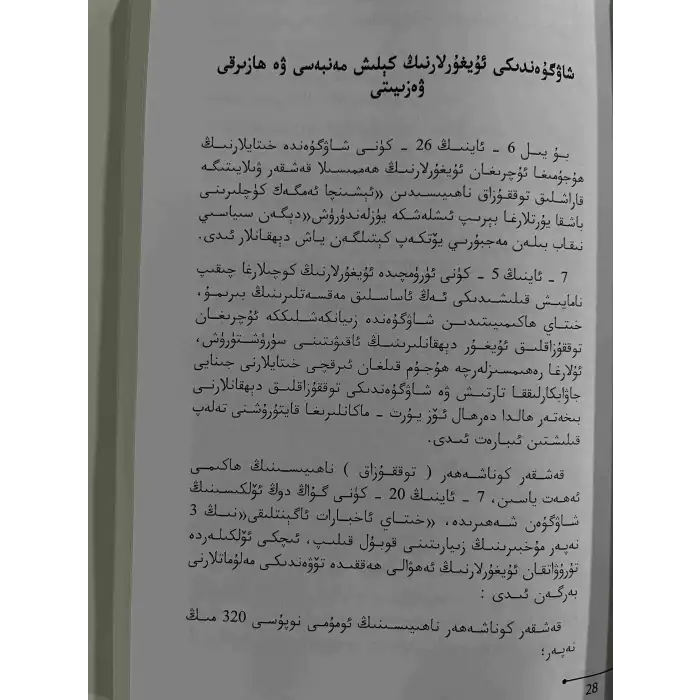 شاۋگۇەندىكى ئۇيغۇرلارنىڭ كېلىش مەنبەسى ۋە ھازىرقى
ۋەزىيىتى
بۇ يىل 6 - ئاينىڭ 26 - كۈنى شاۋگۇەندە خىتايلارنىڭ
ھۇجۇمىغا ئۇچرىغان ئۇيغۇرلارنىڭ ھەممىسىلا قەشقەر ۋىلايىتىگە
قاراشلىق توققۇزاق ناھىيىسىدىن «ئېشىنچا ئەمگەك كۈچلىرىنى
باشقا يۇرتلارغا بېرىپ ئىشلەشكە يۈزلەندۈرۈش«دېگەن سىياسىي
نىقاب بىلەن مەجبۇرىي يۆتكەپ كېتىلگەن ياش دېھقانلار ئىدى.
7 - ئاينىڭ 5 - كۈنى ئۈرۈمچىدە ئۇيغۇرلارنىڭ كوچىلارغا چىقىپ
نامايىش قىلىشىدىكى ئەڭ ئاساسلىق مەقسەتلىرىنىڭ بىرىمۇ،
خىتاي ھاكىمىيىتىدىن شاۋگۇەندە زىيانكەشلىككە ئۇچرىغان
توققۇزاقلىق ئۇيغۇر دېھقانلىرىنىڭ ئاقىۋىتىنى سۈرۈشتۈرۈش،
ئۇلارغا رەھىمسىزلەرچە ھۇجۇم قىلغان ئىرقچى خىتايلارنى جىنايى
جاۋابكارلىققا تارتىش ۋە شاۋگۇەندىكى توققۇزاقلىق دېھقانلارنى
بىخەتەر ھالدا دەرھال ئۆز يۇرت - ماكانلىرىغا قايتۇرۇشنى تەلەپ
قىلىشتىن ئىبارەت ئىدى.
قەشقەر كوناشەھەر ( توققۇزاق ) ناھىيىسىنىڭ ھاكىمى
ئەھەت ياسىن، 7 - ئاينىڭ 20 - كۈنى گۇاڭ دوڭ ئۆلكىسىنىڭ
شاۋگۇەن شەھىرىدە، «خىتاي ئاخبارات ئاگېنتلىقى«نىڭ 3
نەپەر مۇخبىرىنىڭ زىيارىتىنى قوبۇل قىلىپ، ئىچكى ئۆلكىلەردە
تۇرۇۋاتقان ئۇيغۇرلارنىڭ ئەھۋالى ھەققىدە تۆۋەندىكى مەلۇماتلارنى
بەرگەن ئىدى :
قەشقەر كوناشەھەر ناھىيىسىنىڭ ئومۇمى نوپۇسى 320 مىڭ
نەپەر؛
28